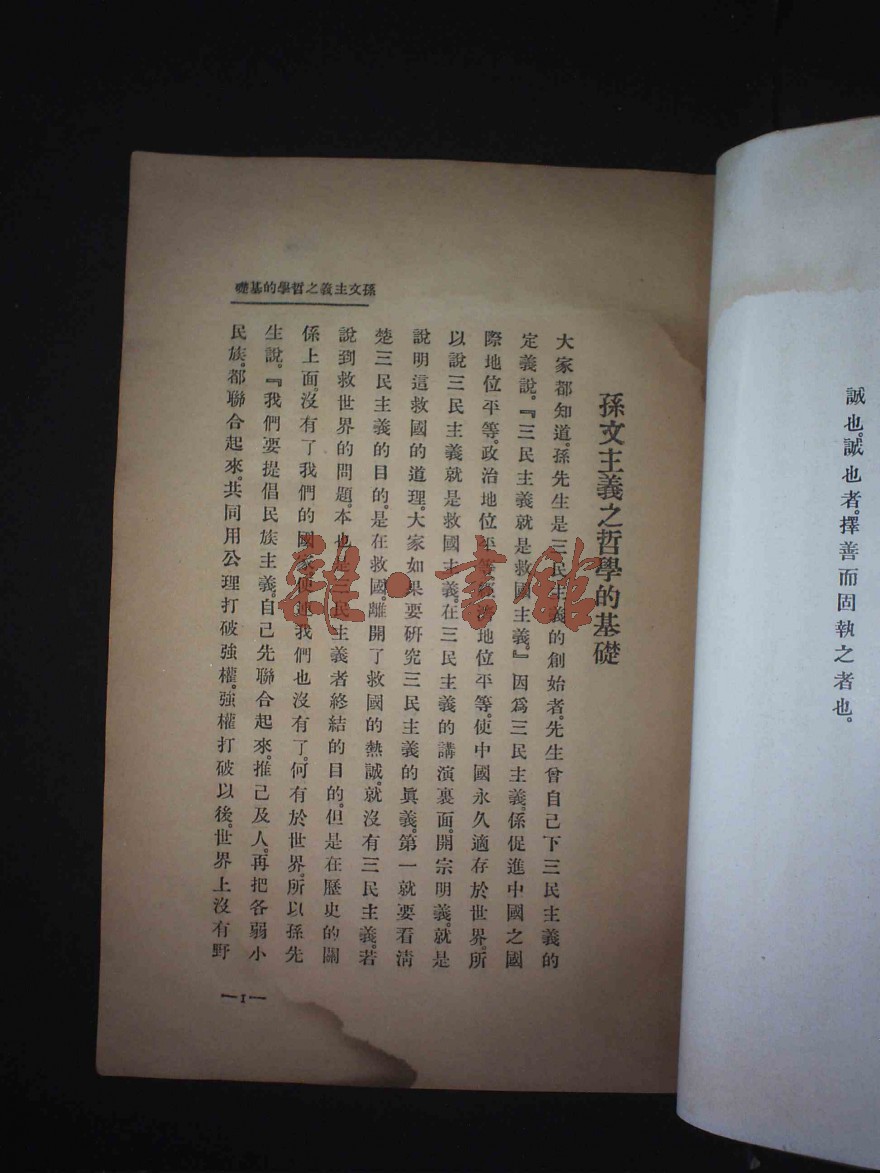 誠也。誠也者。擇善而固執之者也。
孫文主義之哲學的基礎
孫文主義之哲學的基礎
大家都知道。孫先生是三民主義的創始者。先生曾自己下三民主義的
定義說。『三民主義就是救國主義。』因爲三民主義。係促進中國之國
際地位平等。政治地位平等。經濟地位平等。使中國永久適存於世界。所
以說三民主義就是救國主義。在三民主義的講演裏面。開宗明義。就是
說明這救國的道理。大家如果要硏究三民主義的眞義。第一就要看淸
楚三民主義的目的。是在救國。離開了救國的熱誠。就沒有三民主義。若
說到救世界的問題。本也是三民主義者終結的目的。但是在歷史的關
係上面。沒有了我們的國家。便連我們也沒有了。何有於世界。所以孫先
生說。『我們要提倡民族主義。自己先聯合起來。推己及人。再把各弱小
民族。都聯合起來。共同用公理打破強權。強權打破以後。世界上沒有野
—1—
雜·書館